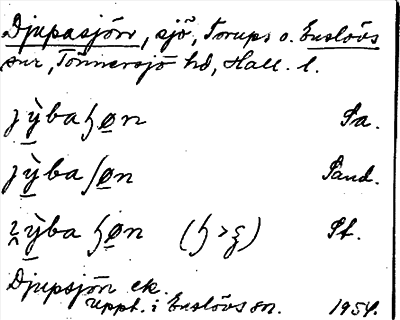 Djupasjön, sjö, Torups o. Enslövs
snr, Tönnersjö hd, Hall. l.
jỳ̠ba ɧø̠n Pa.
jỳ̠ba ʃø̠n Pand.
ỳ̠ba ɧø̠n Pf.
Djupsjön ek.
Uppt. i Enslövs sn. 1954.